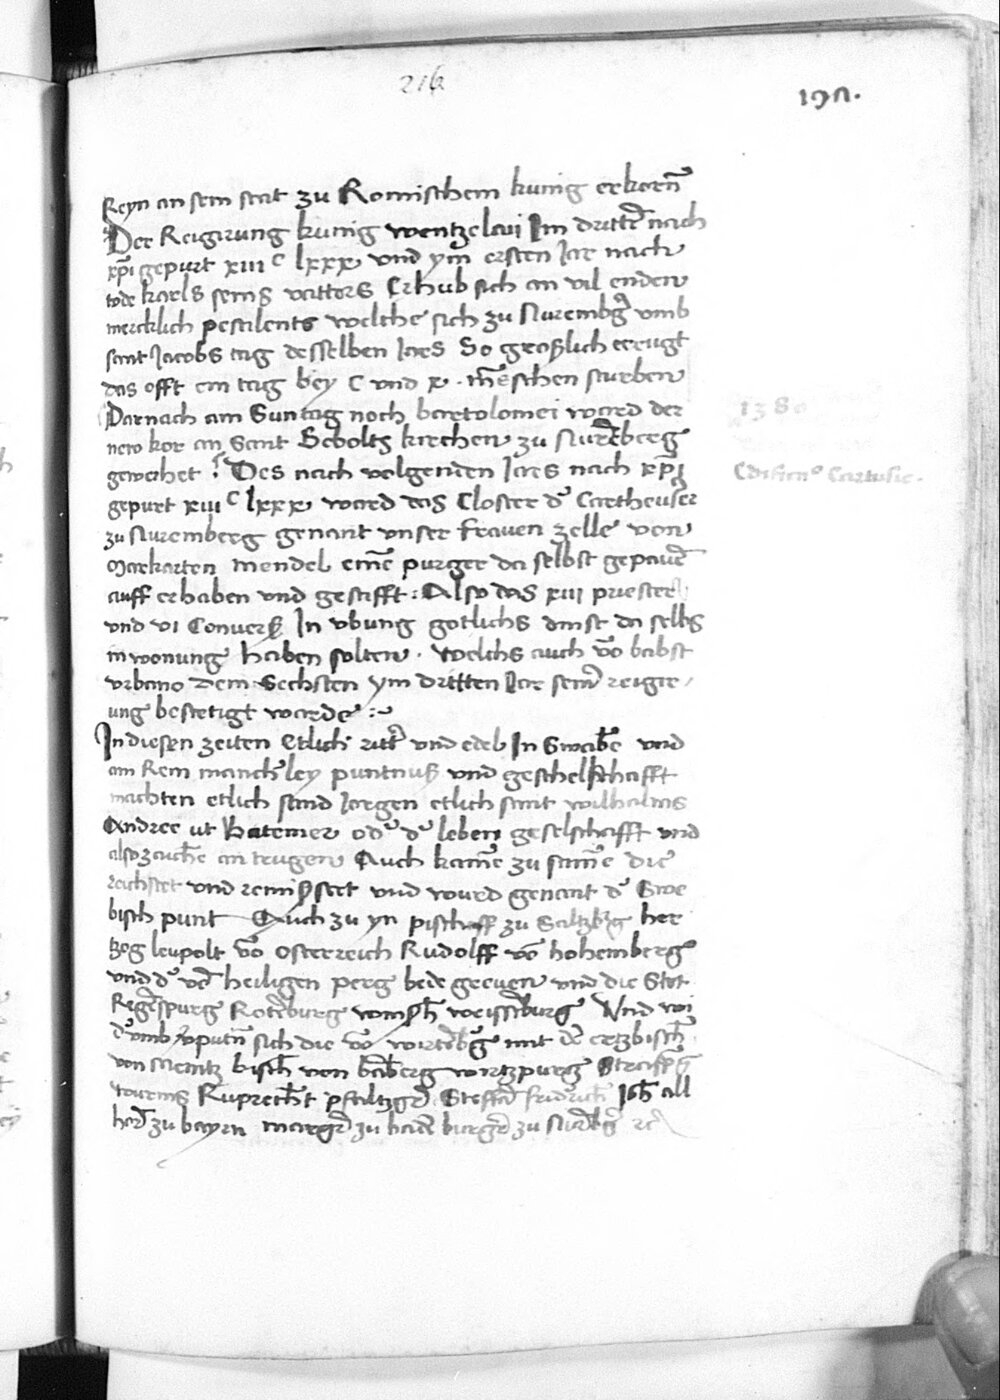 216
197.
Reyn an sein stat zu Romischem kunig erkorn̄
Der Reigirung kunig wentzelaii Im dritten nach
xp̄i gepurt xiii c lxxx und ym ersten Jar nach
tode karls seins vatters Erhub sich an vil enden
mercklich pestilents welche sich zu Nurembḡ vmb
sant Jacobs tag desselben Jars So groszlich ereugt
das offt ein tag bey C und x . mēschen sturben
Darnach am Suntag noch bartolomei ward der
new kor an Sant Sebolts kirchen zu Nurēberg
geweihet Des nach volgenden Jars nach xp̄i
1380
gepurt xiii c lxxx ward das Closter d' Cartheuser
Edificio Cartusie.
zu Nuremberg genant unser frauen zelle von
Markarten mendel einē purger da selbst gepauē
auff erhaben und gestifft : Also das xiii priester
und vi Convers In ubung gotlichs dinst da selbs
in wonung haben solten . Welchs auch vō babst
urbano dem Sechsten ym dritten Jar seinr reigir
ung bestetigt warde :~
In diesen zeiten Etlich ritt' und edel In Swabē und
am Rein manch'ley puntnus und geschelschafft
machten etlich sand Jorgen etlich sant wilhalms
Andree ut hatemer od' d' leben geselschafft und
also zaichē an trugen Auch kamē zu samē die
reichstet und stet und wurd genant d' Swe
bisch punt Auch zu yn pischoff zu Saltzbg her
tzog leupolt vō osterreich Rudolff vō hohemberg
und d' vō heiligen perg bede greven und die Stet
Regēspurg Rotēburg weissēburg Und wi
d'umb v'puntn̄ sich die vō wirtēbḡ mit dē ertzbisch̄
von Meintz bisch̄ von bābērg wirtzpurg Straspḡ
wurms Ruprecht pfaltzgrē Steffā fridrich Joh̄ all
herē zu bayrn margē zu badē burgrē zu Nurēbḡ rc